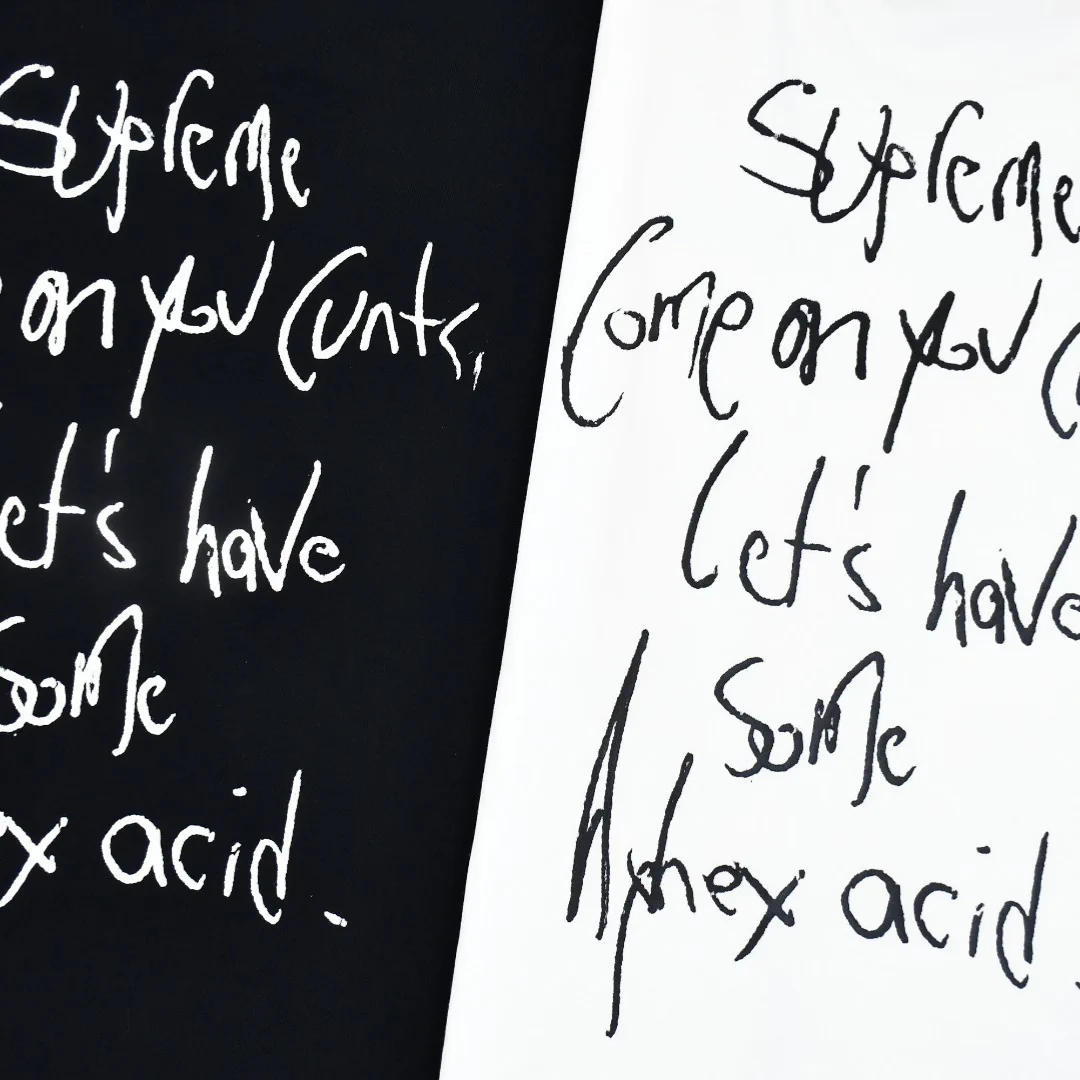 Supreme
on you cunts,
et's have
some
ex acid.
Supreme
Come on you c
Let's have
some
Aphex acid.